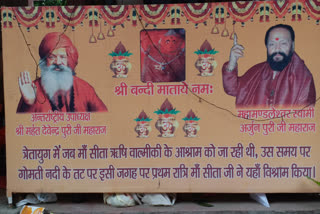 श्री बन्दी माताये नमः
अन्तराष्ट्रीय उपाध्यक्ष
श्री महंत देवेन्द्र पुरी जी महाराज
महामण्डलेश्वर स्वामी
अर्जुन पुरी जी महाराज
त्रेतायुग में जब माँ सीता ऋषि वाल्मीकी के आश्रम को जा रही थी, उस समय पर
गोमती नदी के तट पर इसी जगह पर प्रथम रात्रि माँ सीता जी ने यहाँ विश्राम किया।